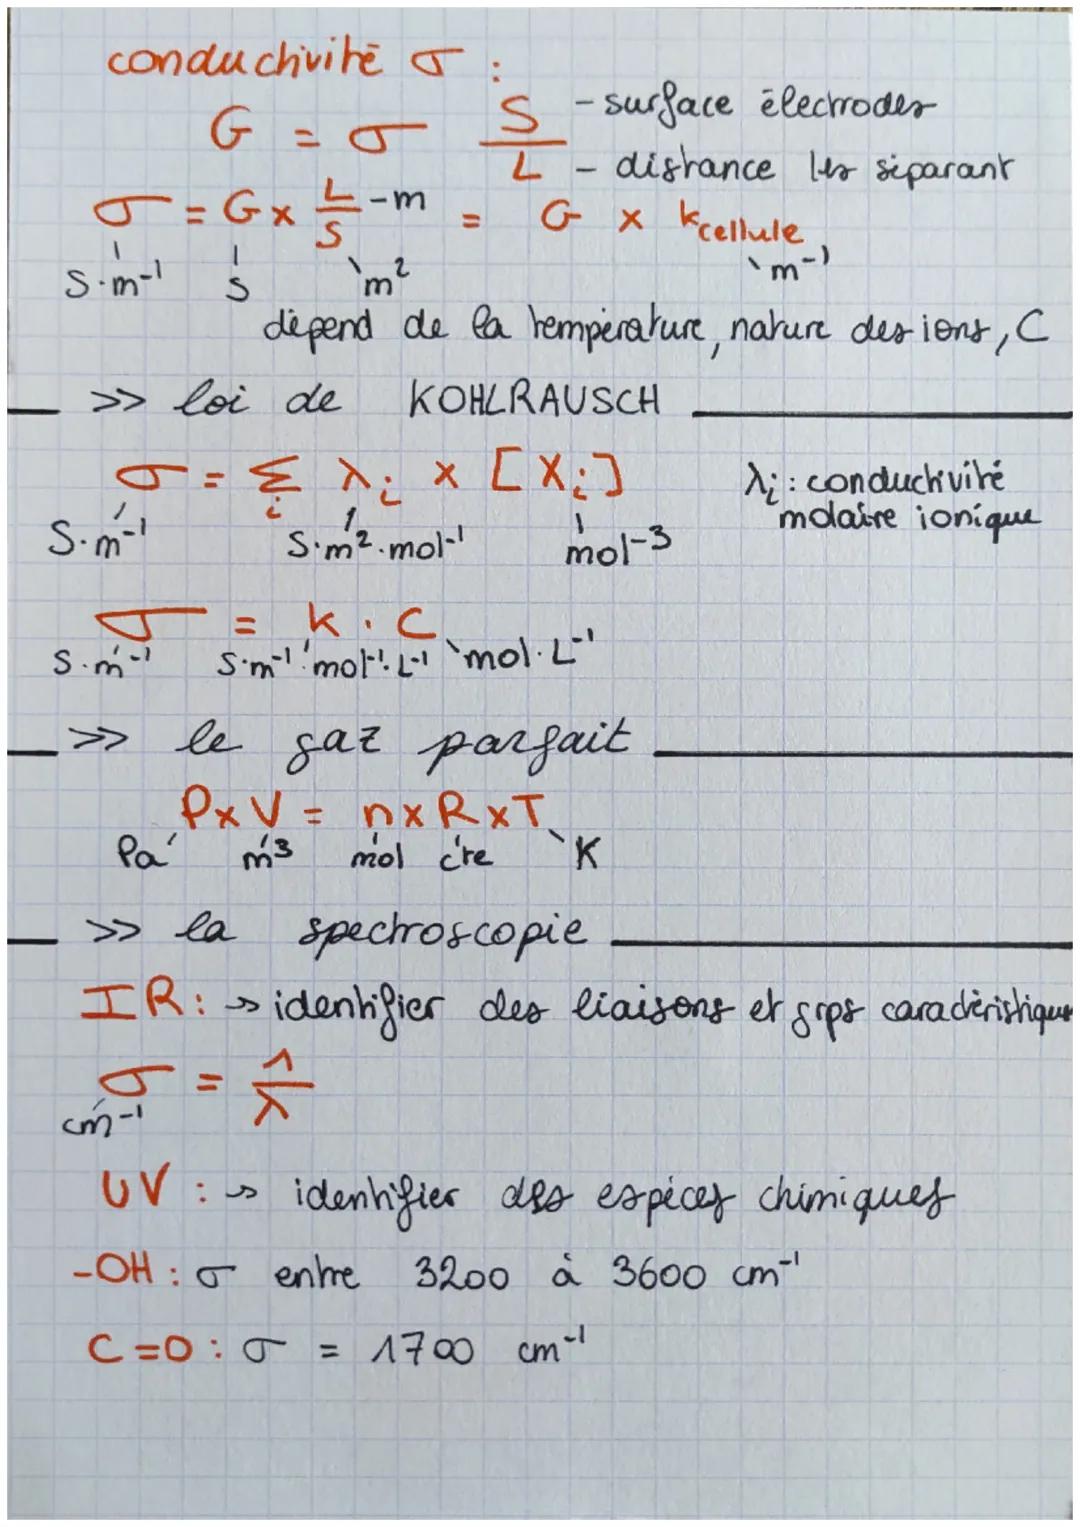 conductivité σ :
G = σ S/L - surface électrodes
- distance les séparant
σ = G x L/S - m = G x kcellule
S·m⁻¹ S m² m⁻¹
dépend de la température, nature des ions, C
>> loi de KOHLRAUSCH
σ = Σi λi x [Xi] λi : conductivité
molaire ionique
S·m⁻¹ S·m²·mol⁻¹ mol⁻³
σ = k · C
S·m⁻¹ S·m⁻¹·mol⁻¹·L⁻¹ mol·L⁻¹
>> le gaz parfait
P x V = n x R x T
Pa m³ mol c're K
>> la spectroscopie
IR : → identifier des liaisons et grps caractéristiques
σ = 1/λ
cm⁻¹
UV : → identifier des espèces chimiques
-OH : σ entre 3200 à 3600 cm⁻¹
C=O : σ = 1700 cm⁻¹